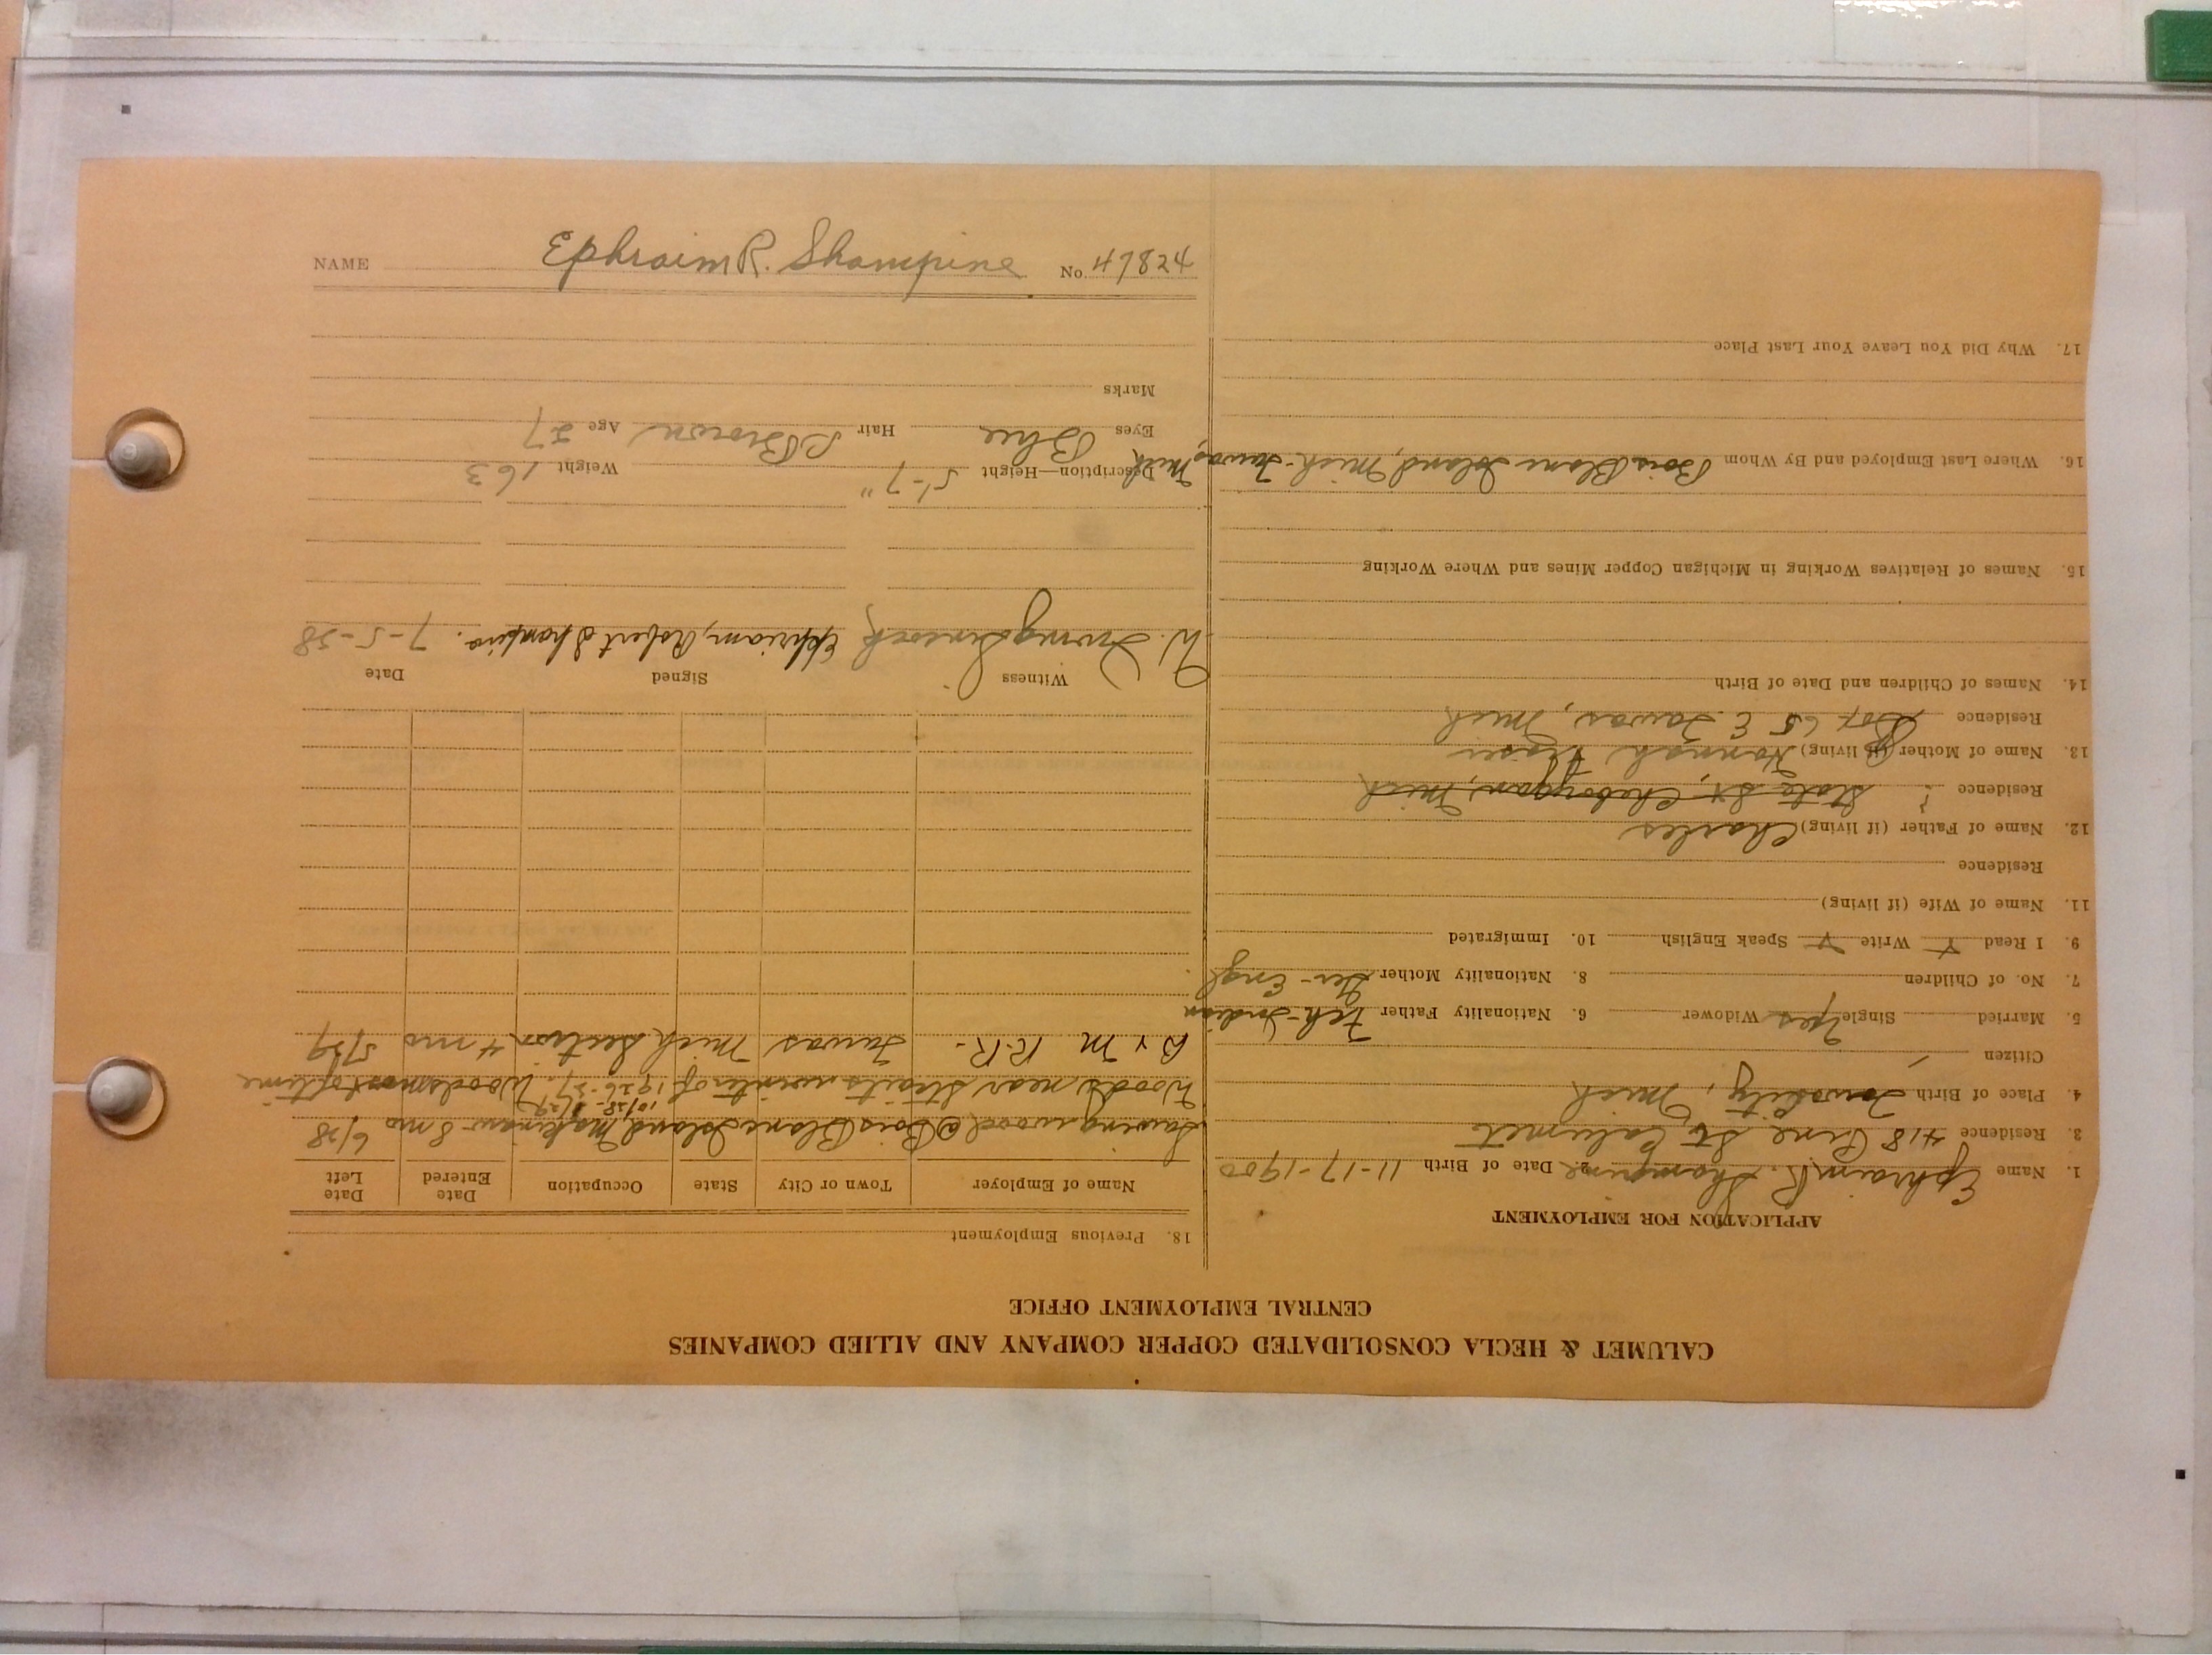 CALUMET & HECLA CONSOLIDATED COPPER COMPANY AND ALLIED COMPANIES
CENTRAL EMPLOYMENT OFFICE
APPLICATION FOR EMPLOYMENT
1. Name Ephraim R. Shampine 2. Date of Birth 11-17-1900
3. Residence 418 Pine St Calumet
4. Place of Birth Tawas City, Mich
Citizen
5. Married Single Yes Widower 6. Nationality Father Fch-Indian
7. No. of Children 8. Nationality Mother Ger-Engl
9. I Read Y Write Y Speak English 10. Immigrated
11. Name of Wife (if living)
Residence
12. Name of Father (if living) Charles
Residence ? State St, Cheboygan, Mich
13. Name of Mother (if living) Hannah
Residence Box 65 E. Tawas, Mich
14. Names of Children and Date of Birth
15. Names of Relatives Working in Michigan Copper Mines and Where Working
16. Where Last Employed and By Whom Bois Blanc Island, Mich-Tawas, Mich
17. Why Did You Leave Your Last Place
18. Previous Employment
Name of Employer Town or City State Occupation Date Entered Date Left
Sawing wood @ Bois Blanc Island, Mackinaw 8 mo 6/28
10/28-
Woods near Straits winter of 1926-27. Woods most of time
D & M R.R. Tawas Mich Section 4 mo 5/29
Witness Signed Date
W. Ephriam, Robert Shampine. 7-5-28
Description—Height 5'-7" Weight 163
Eyes Blue Hair Brown Age 27
Marks
NAME Ephraim R. Shampine No. 47824